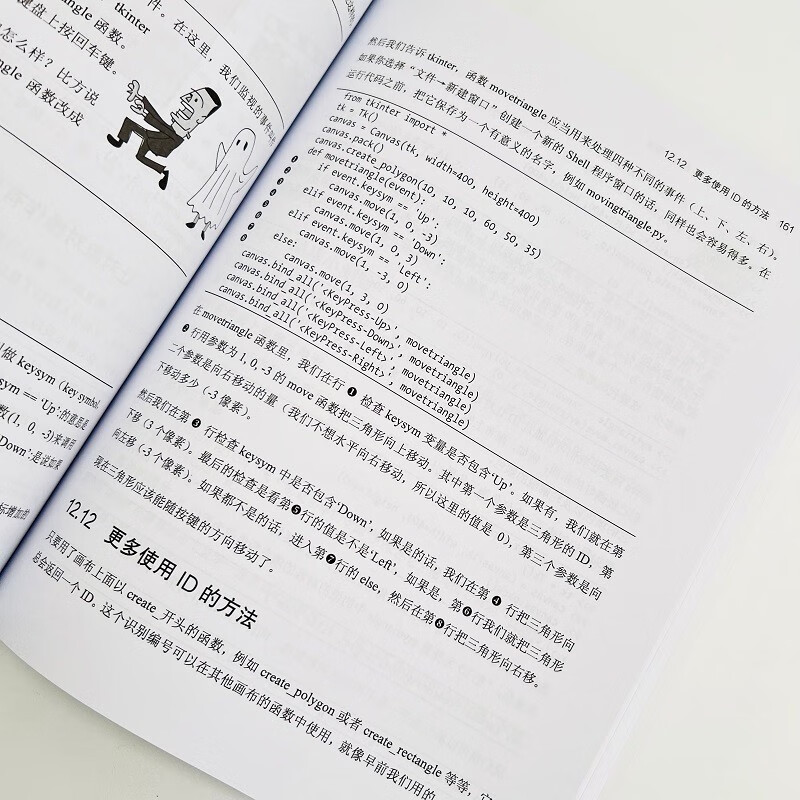 件。在这里，我们监视的事件
tkinter
angle 函数。
键盘上按回车键。
怎么样？比方说
angle 函数改成
做 keysym（key symbol
ysym == 'Up':的意思是
数(1, 0, -3)来调用
Down':是说如果
标增加的
12.12 更多使用 ID 的方法 161
然后我们告诉 tkinter，函数 movetriangle 应当用来处理四种不同的事件（上、下、左、右）。
如果你选择“文件→新建窗口”创建一个新的 Shell 程序窗口的话，同样也会容易得多。在
运行代码之前，把它保存为一个有意义的名字，例如 movingtriangle.py。
from tkinter import *
tk = Tk()
canvas = Canvas(tk, width=400, height=400)
canvas.pack()
canvas.create_polygon(10, 10, 10, 60, 50, 35)
def movetriangle(event):
if event.keysym == 'Up':
canvas.move(1, 0, -3)
elif event.keysym == 'Down':
canvas.move(1, 0, 3)
elif event.keysym == 'Left':
canvas.move(1, -3, 0)
else:
canvas.move(1, 3, 0)
canvas.bind_all('<KeyPress-Up>', movetriangle)
canvas.bind_all('<KeyPress-Down>', movetriangle)
canvas.bind_all('<KeyPress-Left>', movetriangle)
canvas.bind_all('<KeyPress-Right>', movetriangle)
在 movetriangle 函数里，我们在行 ❶ 检查 keysym 变量是否包含‘Up’。如果有，我们就在第
❷ 行用参数为 1, 0, -3 的 move 函数把三角形向上移动。其中第一个参数是三角形的 ID，第
二个参数是向右移动的量（我们不想水平向右移动，所以这里的值是 0），第三个参数是向
下移动多少（-3 像素）。
然后我们在第 ❸ 行检查 keysym 中是否包含‘Down’，如果是的话，我们在第 ❹ 行把三角形向
下移（3 个像素）。最后的检查是看第❺行的值是不是‘Left’，如果是，第❻行我们就把三角形
向左移（-3 个像素）。如果都不是的话，进入第❼行的 else，然后在第❽行把三角形向右移。
现在三角形应该能随按键的方向移动了。
12.12 更多使用 ID 的方法
只要用了画布上面以 create_开头的函数，例如 create_polygon 或者 create_rectangle 等等，它
总会返回一个 ID。这个识别编号可以在其他画布的函数中使用，就像早前我们用的